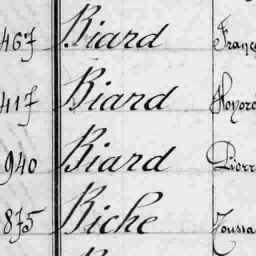 467 Biard Franç
417 Biard Honoré
940 Biard Pierr
875 Biche Toussa